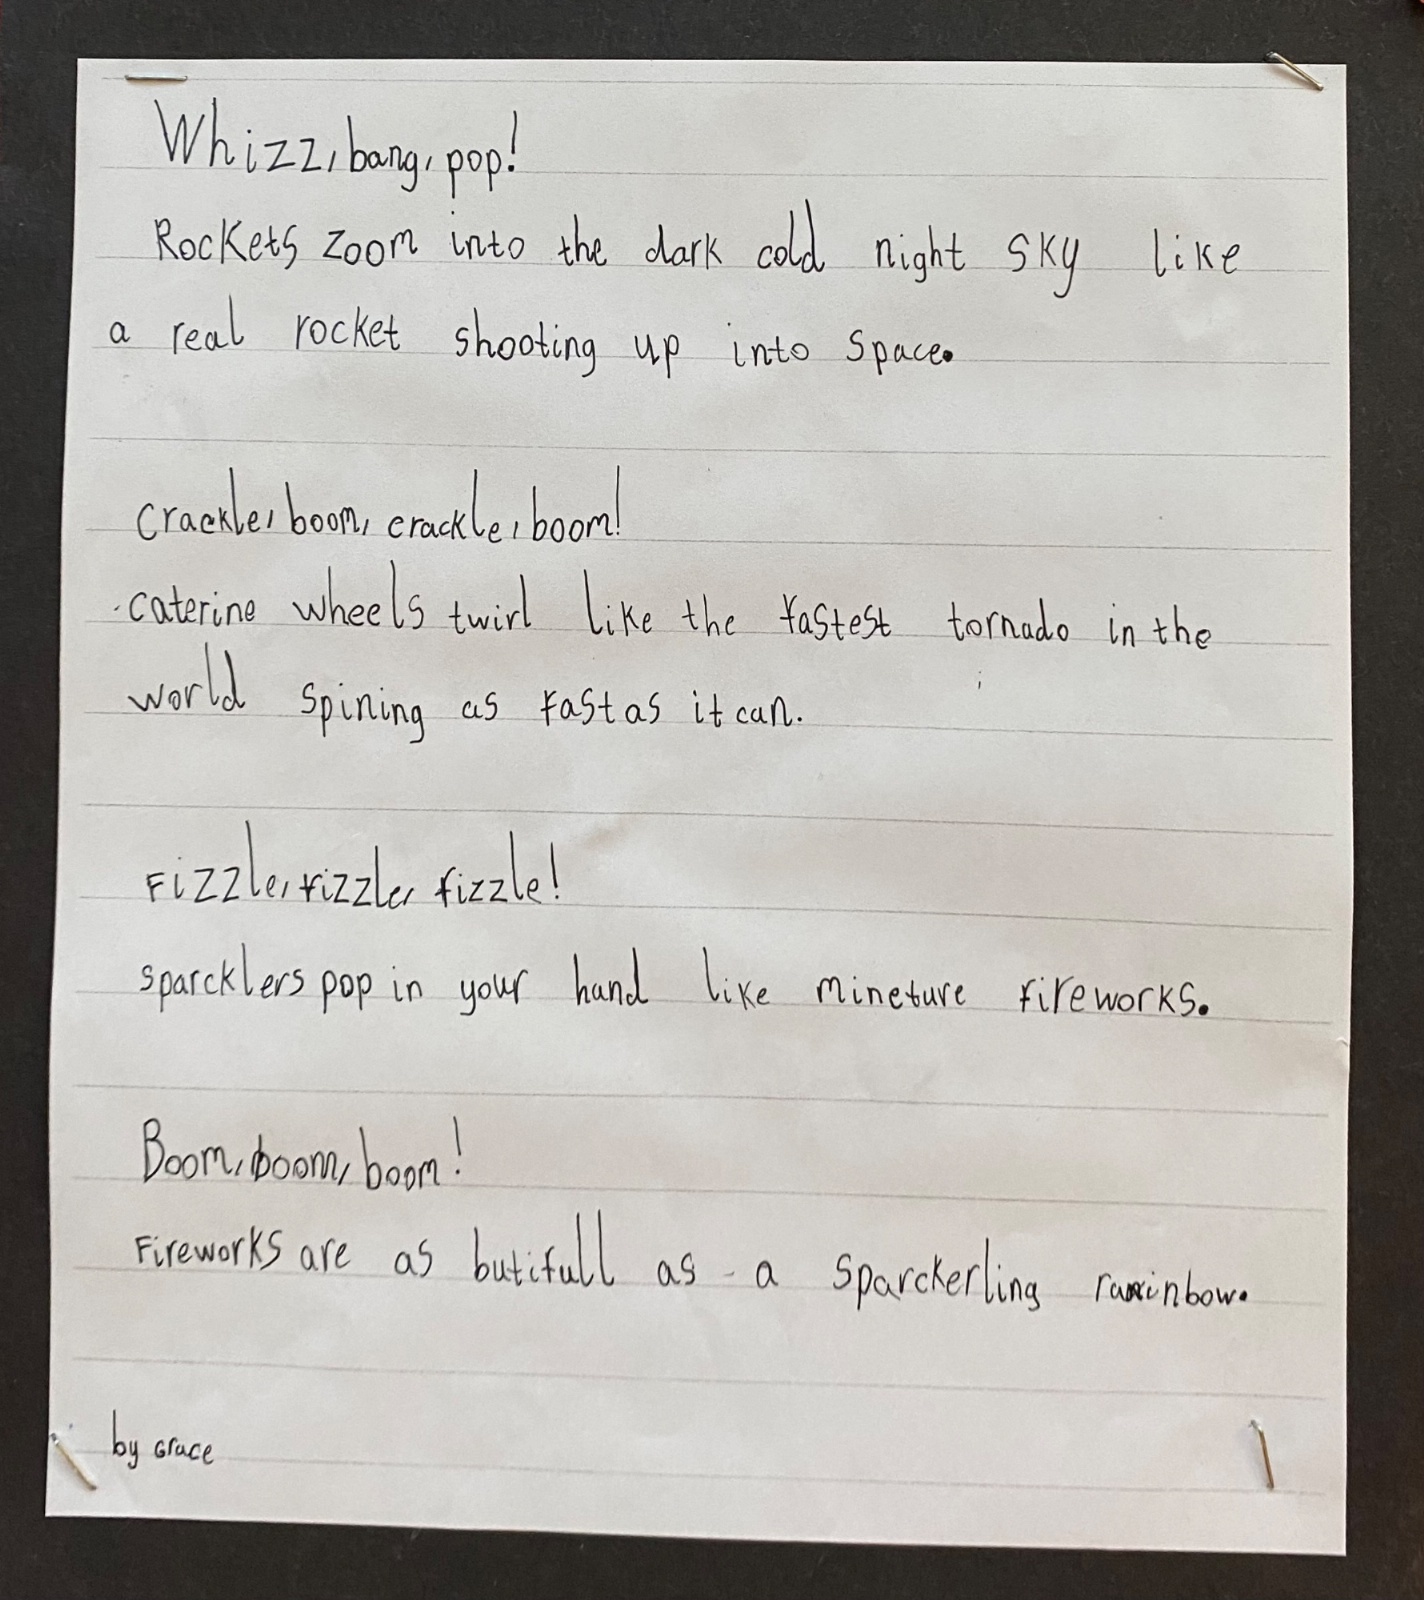 Whizz, bang, pop!
Rockets zoom into the dark cold night sky like
a real rocket shooting up into space.
crackle, boom, crackle, boom!
caterine wheels twirl like the fastest tornado in the
world spining as fast as it can.
Fizzle, fizzle, fizzle!
sparcklers pop in your hand like mineture fireworks.
Boom, boom, boom!
Fireworks are as butifull as a sparckerling rainbow.
by Grace